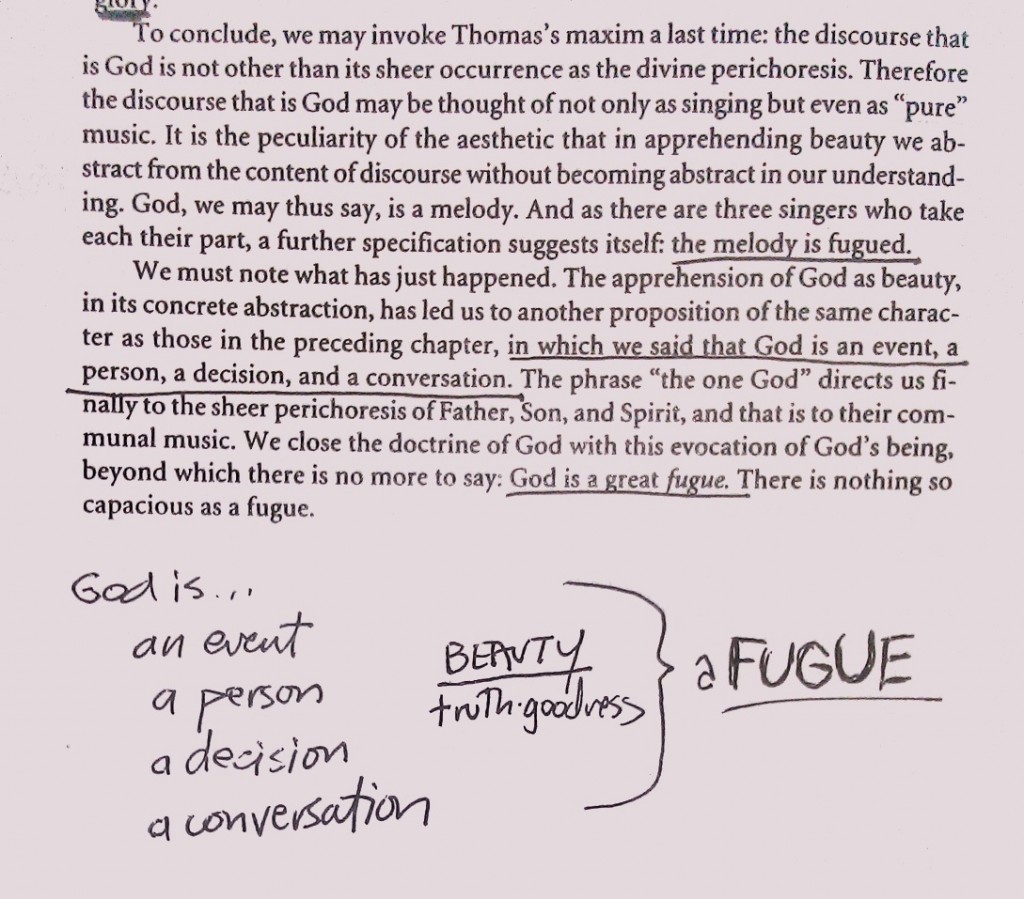 glory.
To conclude, we may invoke Thomas's maxim a last time: the discourse that
is God is not other than its sheer occurrence as the divine perichoresis. Therefore
the discourse that is God may be thought of not only as singing but even as “pure”
music. It is the peculiarity of the aesthetic that in apprehending beauty we ab-
stract from the content of discourse without becoming abstract in our understand-
ing. God, we may thus say, is a melody. And as there are three singers who take
each their part, a further specification suggests itself: the melody is fugued.
We must note what has just happened. The apprehension of God as beauty,
in its concrete abstraction, has led us to another proposition of the same charac-
ter as those in the preceding chapter, in which we said that God is an event, a
person, a decision, and a conversation. The phrase “the one God” directs us fi-
nally to the sheer perichoresis of Father, Son, and Spirit, and that is to their com-
munal music. We close the doctrine of God with this evocation of God's being,
beyond which there is no more to say: God is a great fugue. There is nothing so
capacious as a fugue.
God is...
an event
a person
a decision
a conversation
BEAUTY
truth·goodness
a FUGUE